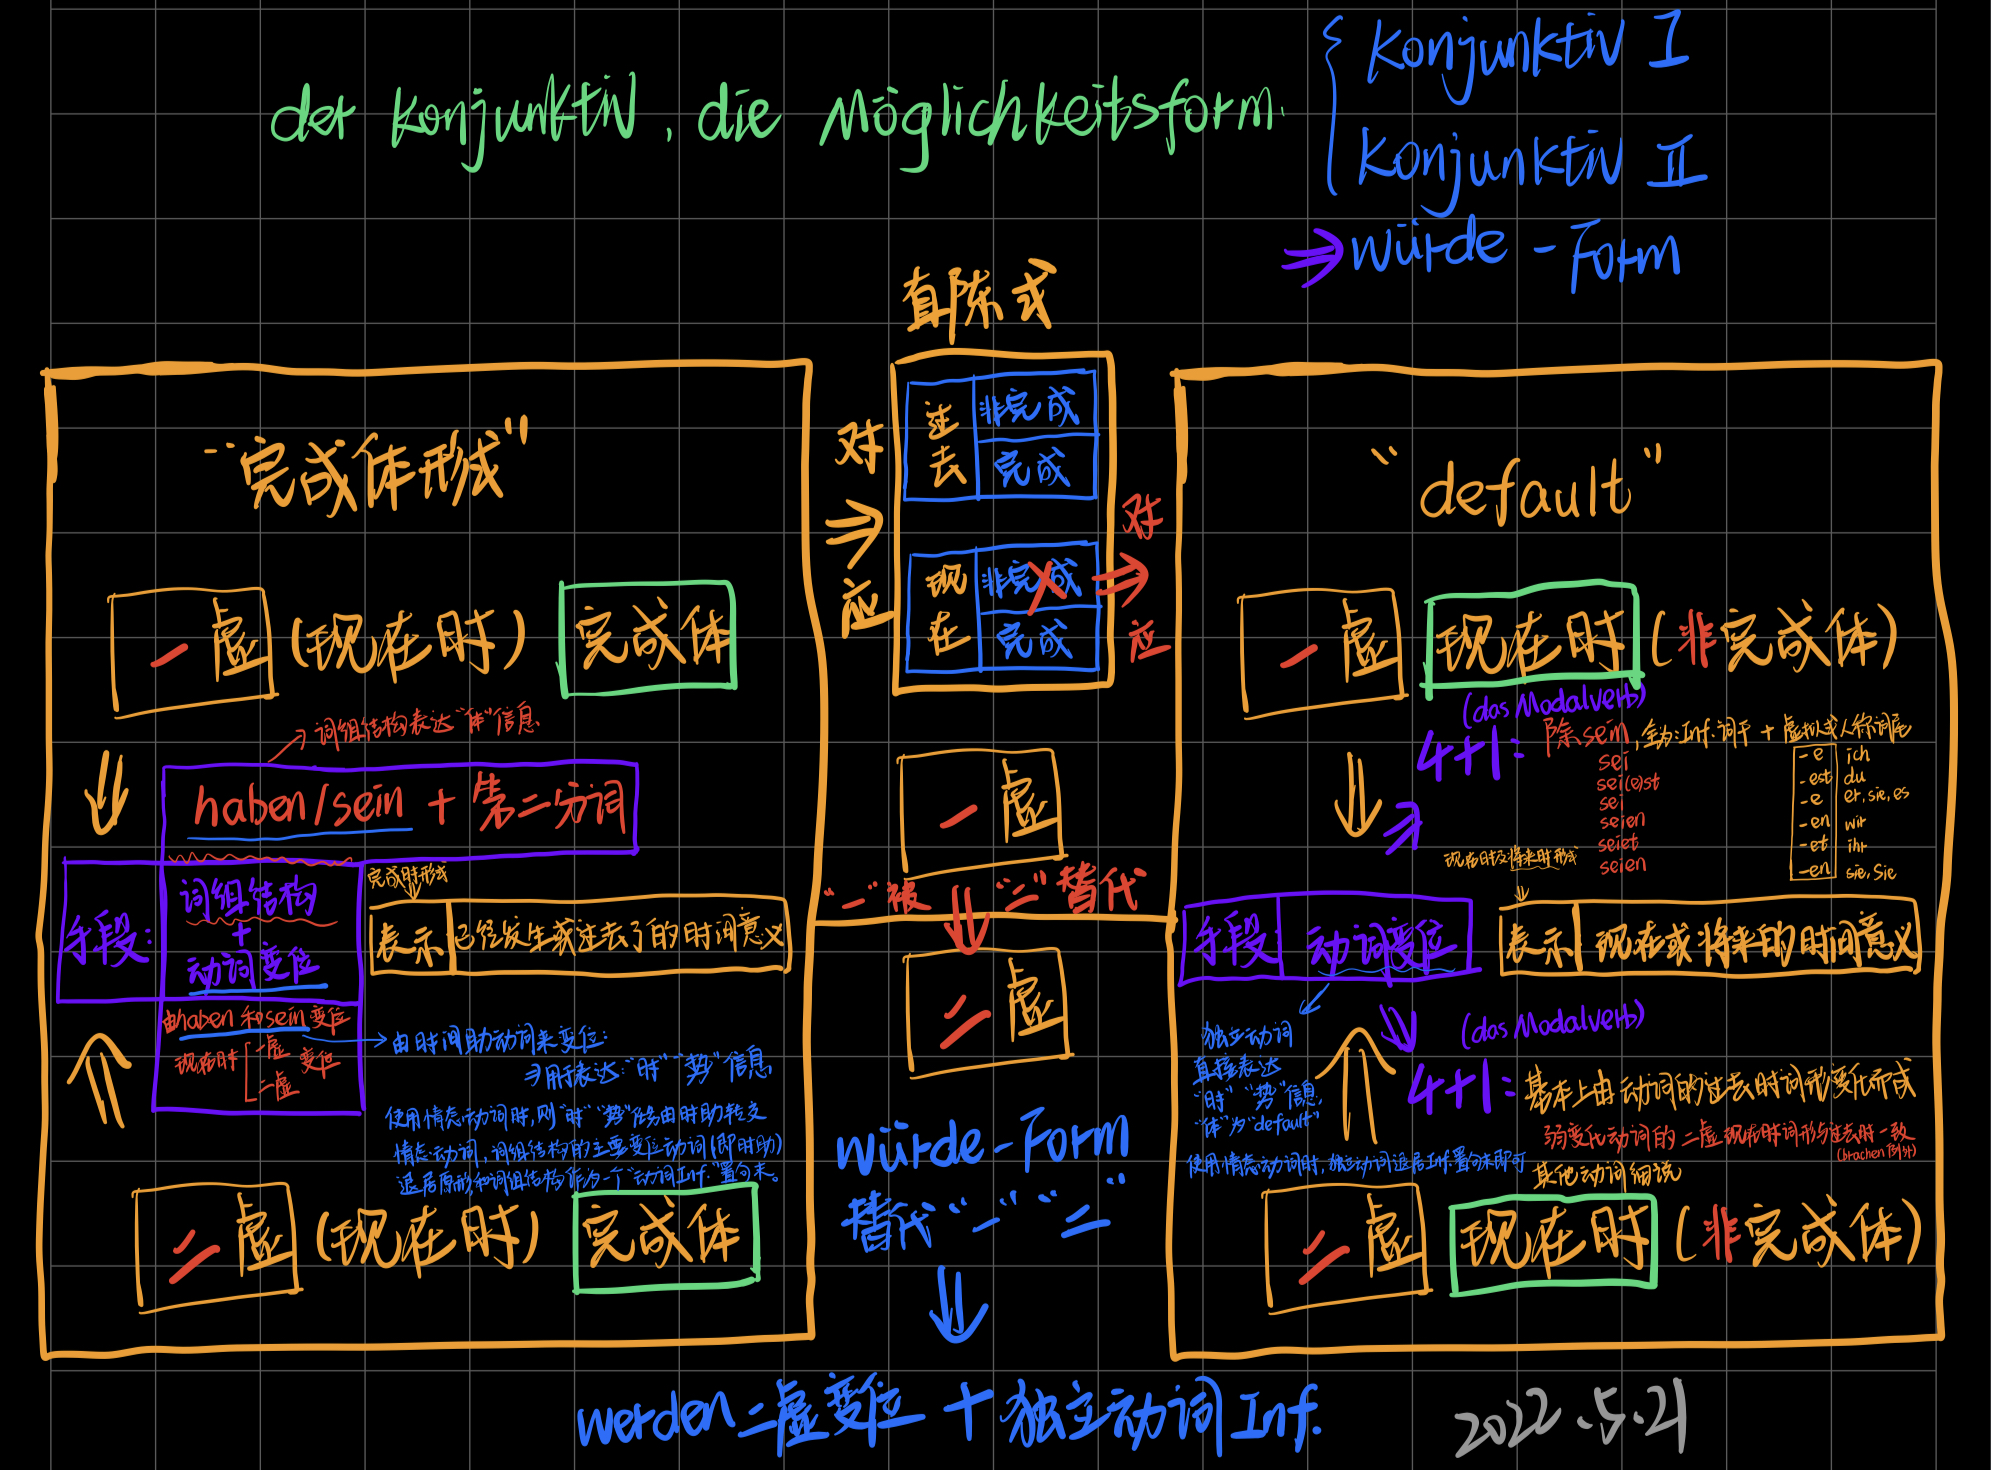 der Konjunktiv, die Möglichkeitsform.
Konjunktiv I
Konjunktiv II
⇒ würde-Form
直陈式
过去
非完成
完成
现在
非完成
完成
对应
对应
"完成体形式"
一虚(现在时)完成体
→词组结构表达"体"信息
haben/sein + 第二分词
手段:
词组结构
+
动词变位
完成时形式
表示 已经发生或过去了的时间意义
由haben和sein变位
现在时
一虚
二虚
变位
→由时间助动词来变位:
用于表达:"时""势"信息
使用情态动词时,则"时""势"信息由时助转交
情态动词,词组结构的主要变位动词(即时助)
退居原形和词组结构作为一个"动词Inf."置句末。
二虚(现在时)完成体
一虚
"一"被"二"替代
二虚
würde-Form
替代"一""二"
werden二虚变位 + 独立动词Inf.
"default"
一虚 现在时(非完成体)
(das Modalverb)
4+1: 除sein,全为:Inf.词干 + 虚拟式人称词尾
sei
sei(e)st
sei
seien
seiet
seien
-e ich
-est du
-e er,sie,es
-en wir
-et ihr
-en sie,Sie
现在时及将来时形式
手段: 动词变位
表示 现在或将来的时间意义
独立动词
直接表达
"时""势"信息
"体"为"default"
使用情态动词时,独立动词退居Inf.置句末即可
(das Modalverb)
4+1: 基本上由动词的过去时词形变化而成
弱变化动词的二虚现在时词形与过去时一致
(brachen例外)
其他动词细说
二虚 现在时(非完成体)
2022.5.21